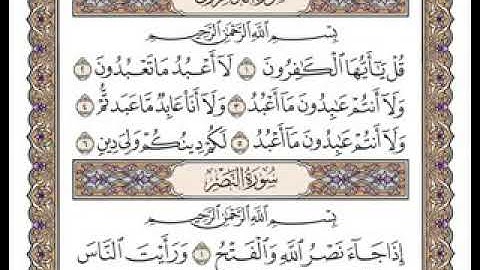 سورة الكافرون
بِسْمِ اللَّهِ الرَّحْمَٰنِ الرَّحِيمِ
قُلْ يَٰٓأَيُّهَا الْكَٰفِرُونَ ١ لَآ أَعْبُدُ مَا تَعْبُدُونَ ٢
وَلَآ أَنتُمْ عَٰبِدُونَ مَآ أَعْبُدُ ٣ وَلَآ أَنَا۠ عَابِدٌ مَّا عَبَدتُّمْ ٤
وَلَآ أَنتُمْ عَٰبِدُونَ مَآ أَعْبُدُ ٥ لَكُمْ دِينُكُمْ وَلِيَ دِينِ ٦
سُورَةُ النَّصْرِ
بِسْمِ اللَّهِ الرَّحْمَٰنِ الرَّحِيمِ
إِذَا جَآءَ نَصْرُ اللَّهِ وَالْفَتْحُ ١ وَرَأَيْتَ النَّاسَ